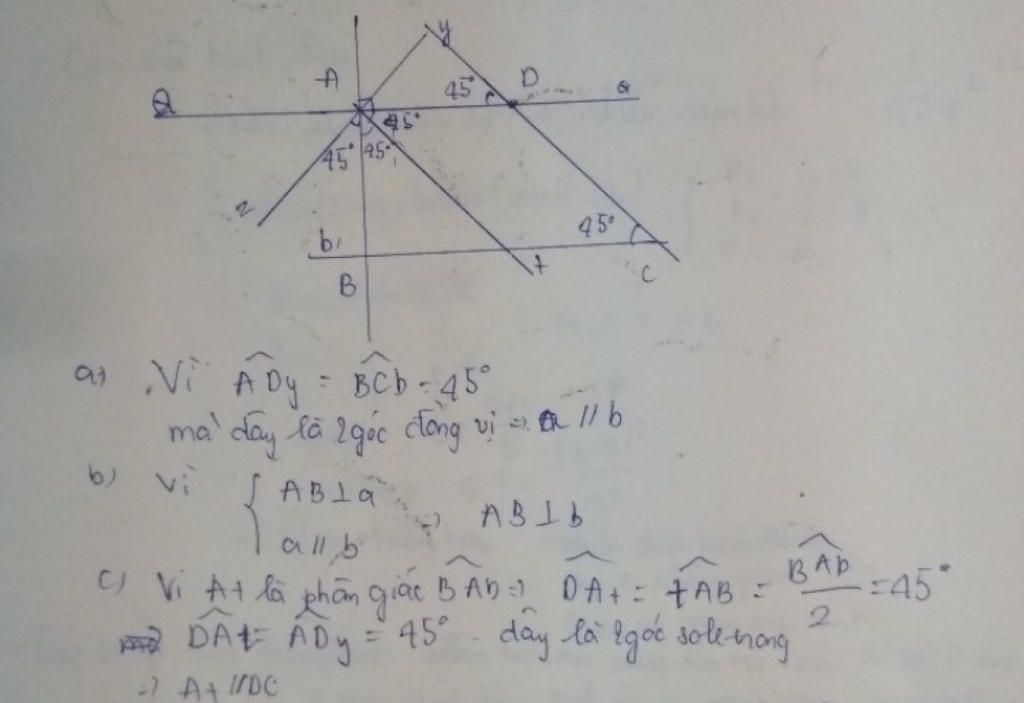 y
A
45°
D
a
a
45°
45°
45°
z
45°
b
B
t
C
a) Vì \widehat{ADy} = \widehat{BCb} = 45°
mà đây là 2 góc đồng vị => a // b
b) Vì { AB ⊥ a
a // b => AB ⊥ b
c) Vì At là phân giác \widehat{BAD} => \widehat{DAt} = \widehat{tAB} = \frac{\widehat{BAD}}{2} = 45°
=> \widehat{DAt} = \widehat{ADy} = 45° đây là 2 góc so le trong
=> At // DC